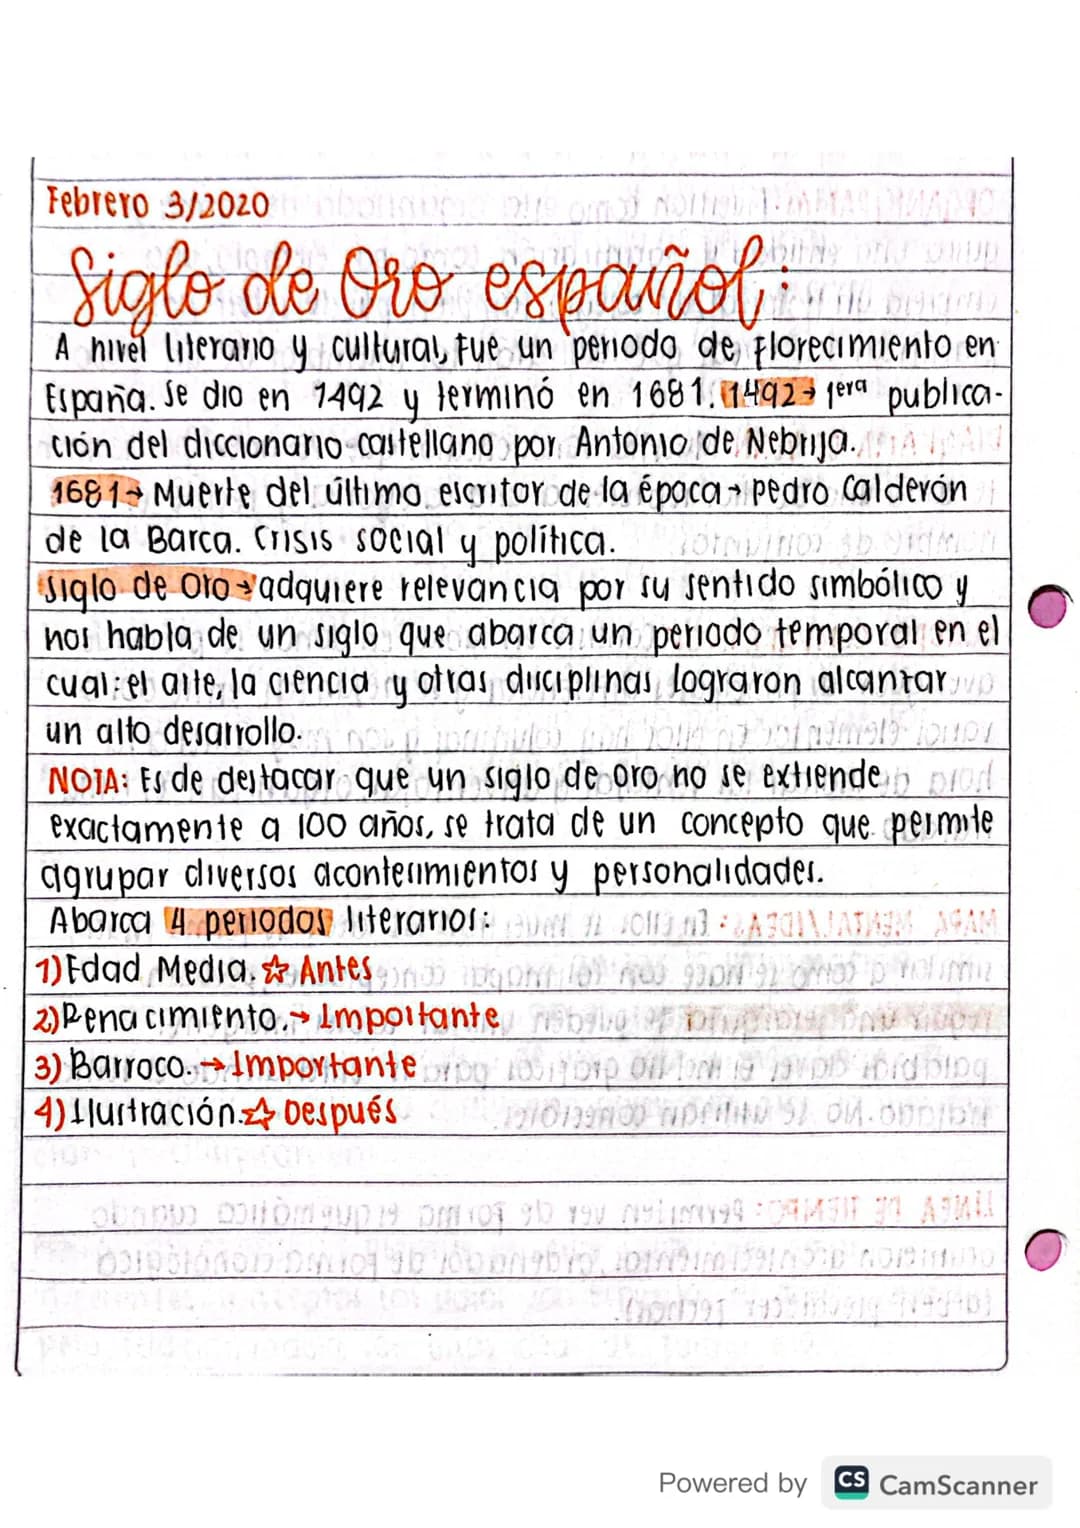 Febrero 3/2020
Siglo de Oro español:
A nivel literario y cultural, fue un periodo de florecimiento en
España. Se dio en 1492 y terminó en 1681. 1492→ 1era publica-
ción del diccionario castellano por Antonio de Nebrija.
1681→ Muerte del último escritor de la época→ Pedro Calderón
de la Barca. Crisis social y política.
Siglo de Oro→ adquiere relevancia por su sentido simbólico y
nos habla de un siglo que abarca un periodo temporal en el
cual: el arte, la ciencia y otras disciplinas lograron alcanzar
un alto desarrollo.
NOTA: Es de destacar que un siglo de oro no se extiende
exactamente a 100 años, se trata de un concepto que permite
agrupar diversos acontecimientos y personalidades.
Abarca 4 periodos literarios:
1) Edad Media. ☆ Antes
2) Renacimiento. → Importante
3) Barroco. → Importante
4) Ilustración. ☆ Después
Powered by CS CamScanner